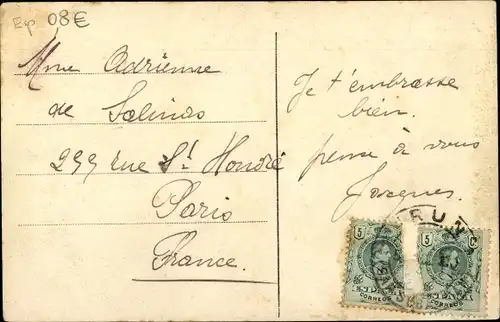 Esp 08€
Mme Adrienne
de Salinas
299 rue St. Honoré
Paris
France.
Je t'embrasse
bien.
pense à vous
Jacques.
IRUN
5 Cs 5 Cs
CORREOS CORREOS